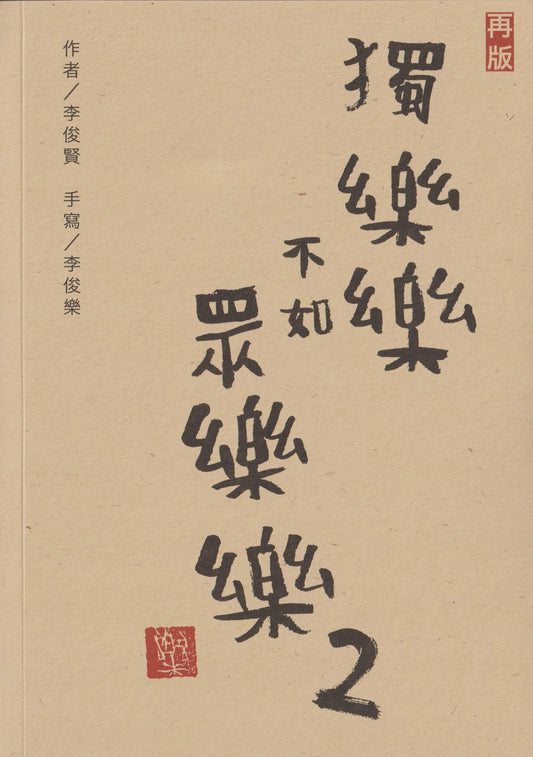 再版
獨樂樂
不如
眾樂樂2
作者／李俊賢 手寫／李俊樂